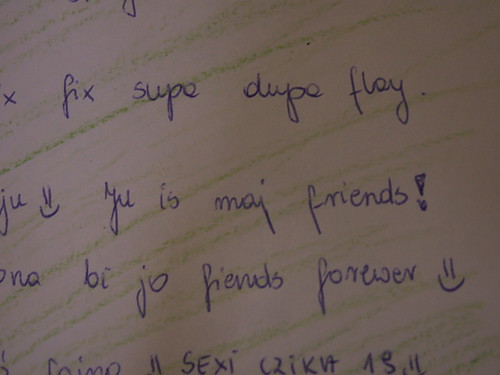 fix supa dupa flay.
ju Ju is maj friends!
bi jo fiends forewer
fajna SEXI CZIKA